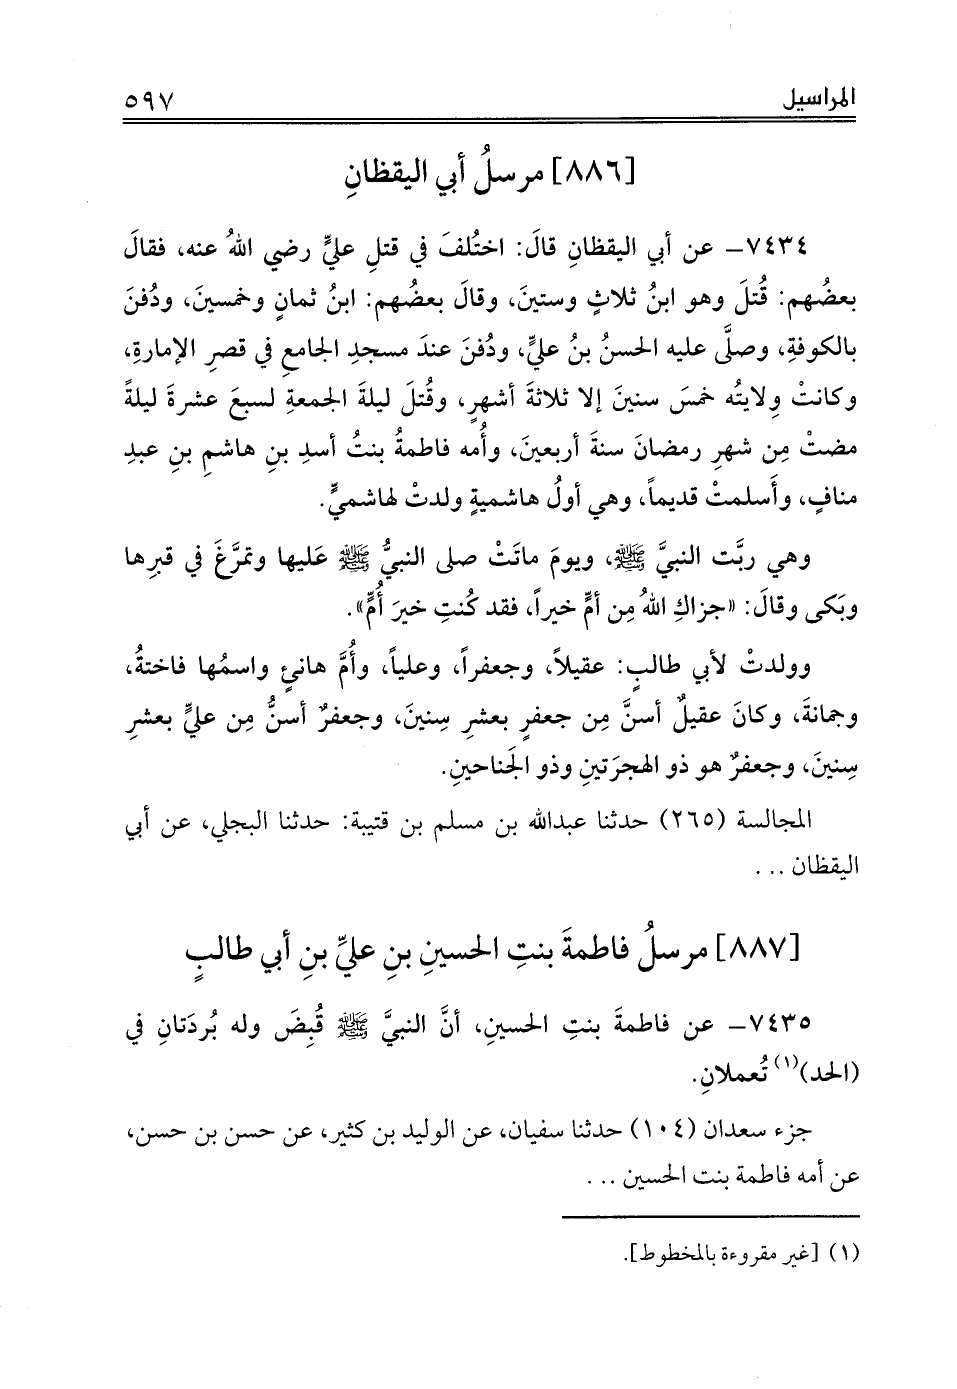 المراسيل ٥٩٧
[٨٨٦] مرسلُ أبي اليقظانِ
٧٤٣٤– عن أبي اليقظانِ قالَ: اختُلفَ في قتلِ عليٍّ رضي اللهُ عنه، فقالَ
بعضُهم: قُتلَ وهو ابنُ ثلاثٍ وستينَ، وقالَ بعضُهم: ابنُ ثمانٍ وخمسينَ، ودُفنَ
بالكوفةِ، وصلَّى عليه الحسنُ بنُ عليٍّ، ودُفنَ عندَ مسجدِ الجامعِ في قصرِ الإمارةِ،
وكانتْ وِلايتُه خمسَ سنينَ إلا ثلاثةَ أشهرٍ، وقُتلَ ليلةَ الجمعةِ لسبعَ عشرةَ ليلةً
مضتْ مِن شهرِ رمضانَ سنةَ أربعينَ، وأُمه فاطمةُ بنتُ أسدِ بنِ هاشمِ بنِ عبدِ
منافٍ، وأَسلمتْ قديماً، وهي أولُ هاشميةٍ ولدتْ لهاشميٍّ.
وهي ربَّت النبيَّ ﷺ، ويومَ ماتَتْ صلى النبيُّ ﷺ عَليها وتمرَّغَ في قبرِها
وبَكى وقالَ: «جزاكِ اللهُ مِن أمٍّ خيراً، فقد كُنتِ خيرَ أُمٍّ».
وولدتْ لأبي طالبٍ: عقيلاً، وجعفراً، وعلياً، وأُمَّ هانئٍ واسمُها فاختةُ،
وجمانةَ، وكانَ عقيلٌ أسنَّ مِن جعفرٍ بعشرِ سِنينَ، وجعفرٌ أسنُّ مِن عليٍّ بعشرِ
سِنينَ، وجعفرٌ هو ذو الهجرَتينِ وذو الجَناحينِ.
المجالسة (٢٦٥) حدثنا عبدالله بن مسلم بن قتيبة: حدثنا البجلي، عن أبي
اليقظان ...
[٨٨٧] مرسلُ فاطمةَ بنتِ الحسينِ بنِ عليِّ بنِ أبي طالبٍ
٧٤٣٥– عن فاطمةَ بنتِ الحسينِ، أنَّ النبيَّ ﷺ قُبِضَ وله بُردَتانِ في
(الحد)(١) تُعملانِ.
جزء سعدان (١٠٤) حدثنا سفيان، عن الوليد بن كثير، عن حسن بن حسن،
عن أمه فاطمة بنت الحسين ...
(١) [غير مقروءة بالمخطوط].